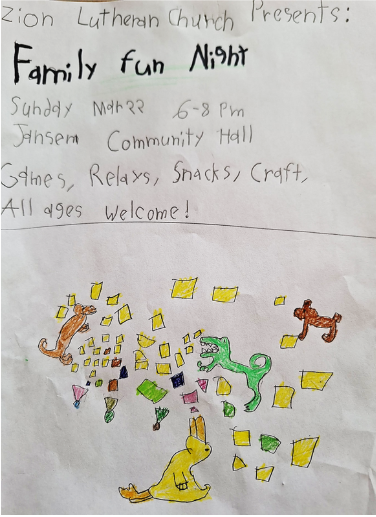 Zion Lutheran Church Presents:
Family fun Night
Sunday Mar 22 6-8 Pm
Jansem Community Hall
Games, Relays, Snacks, Craft,
All ages welcome!